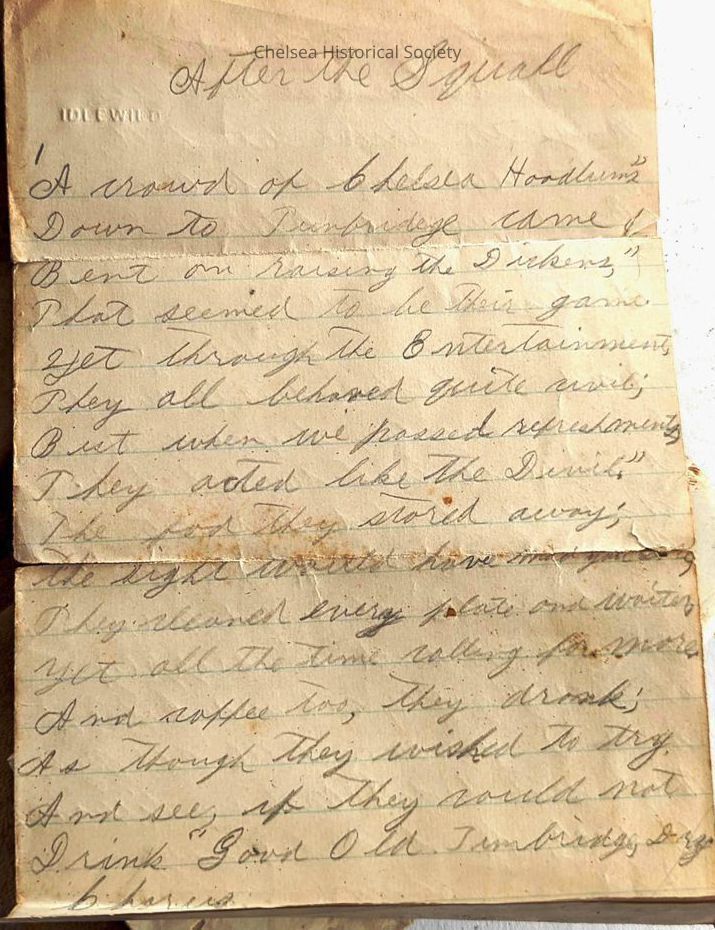 Chelsea Historical Society
After the Squall
IDLEWILD
"A crowd of Chelsea Hoodlums"
Down to Tunbridge came
Bent on raising the Dickens,"
That seemed to be their game
Yet through the Entertainment,
They all behaved quite civil;
But when we passed refreshments,
They acted like the Devil."
The food they stored away;
the sight would have made you
They cleaned every plate and waiter,
Yet all the time calling for more.
And coffee too, they drank;
As though they wished to try.
And see, if they could not
Drink "Good Old Tunbridge, Dry
Chorus